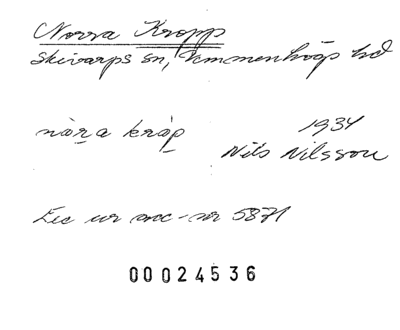 Norra Kropp
Skivarps sn, Vemmenhögs hd
nàra kråp
1934
Nils Nilsson
Lis ur acc-nr 5871
00024536